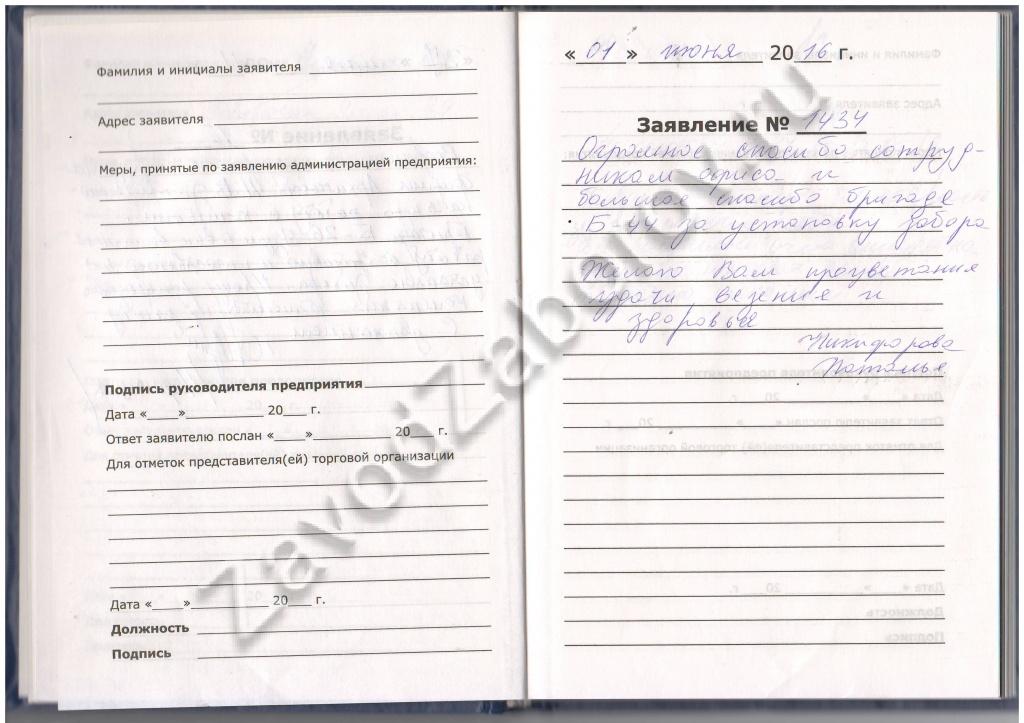 Фамилия и инициалы заявителя
Адрес заявителя
Меры, принятые по заявлению администрацией предприятия:
Подпись руководителя предприятия
Дата «____»__________ 20___ г.
Ответ заявителю послан «____»__________ 20___ г.
Для отметок представителя(ей) торговой организации
Дата «____»__________ 20___ г.
Должность
Подпись
« 01 » июня 20 16 г.
Заявление № 1434
Огромное спасибо сотруд-
никам офиса и
большое спасибо бригаде
Б-44 за установку забора
Желаю Вам процветания
удачи, везения и
здоровья
Никифорова
Наталья
ZavodZaborov.ru